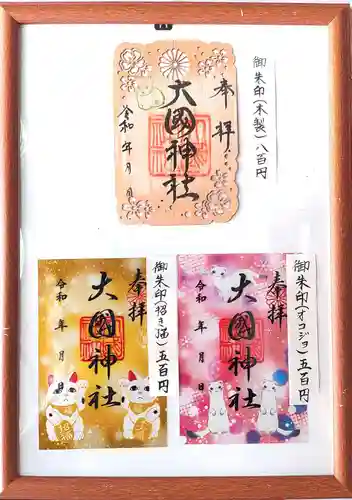 御朱印(木製)八百円
奉拝
大國神社
令和 年 月 日
御朱印(招き猫)五百円
奉拝
大國神社
令和 年 月 日
招福
御朱印(オコジョ)五百円
奉拝
大國神社
令和 年 月 日